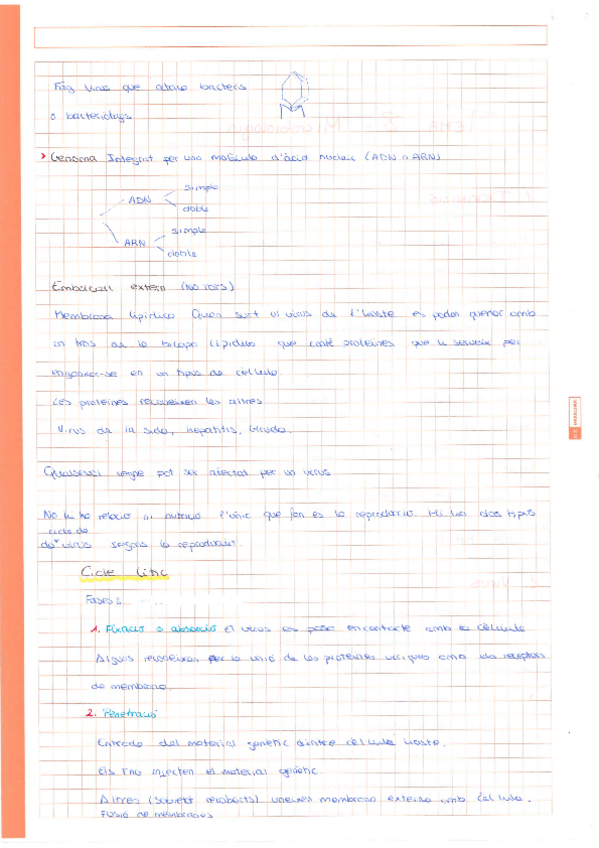 Fag virus que ataca bacteris
o bacteriòfags
> Genoma Integrat per una molècula d'àcid nucleic (ADN o ARN)
ADN simple
doble
ARN simple
doble
Embolcall extern (No tots)
Membrana lipídica Quan surt el virus de l'hoste es poden quedar amb
un tros de la bicapa lipídica que conté proteïnes que li serveix per
enganxar-se en un tipus de cèl·lula.
Les proteïnes reconeixen les altres
Virus de la sida, hepatitis,
Qualsevol regne pot ser afectat per un virus
No hi ha relació ni nutrició l'únic que fan es la reproducció. Hi han dos tipus
cicle de
de virus segons la reproducció.
Cicle lític
Fases:
1. Fixació o absorció el virus es posa en contacte amb la cèl·lula
Alguns reconeixen per la unió de les proteïnes víriques amb els receptors
de membrana.
2. Penetració
Entrada del material genètic dintre cèl·lula hoste.
Els injecten el material genètic.
Altres (sovint ) uneixen membrana externa amb cèl·lula.
Fusió de membranes